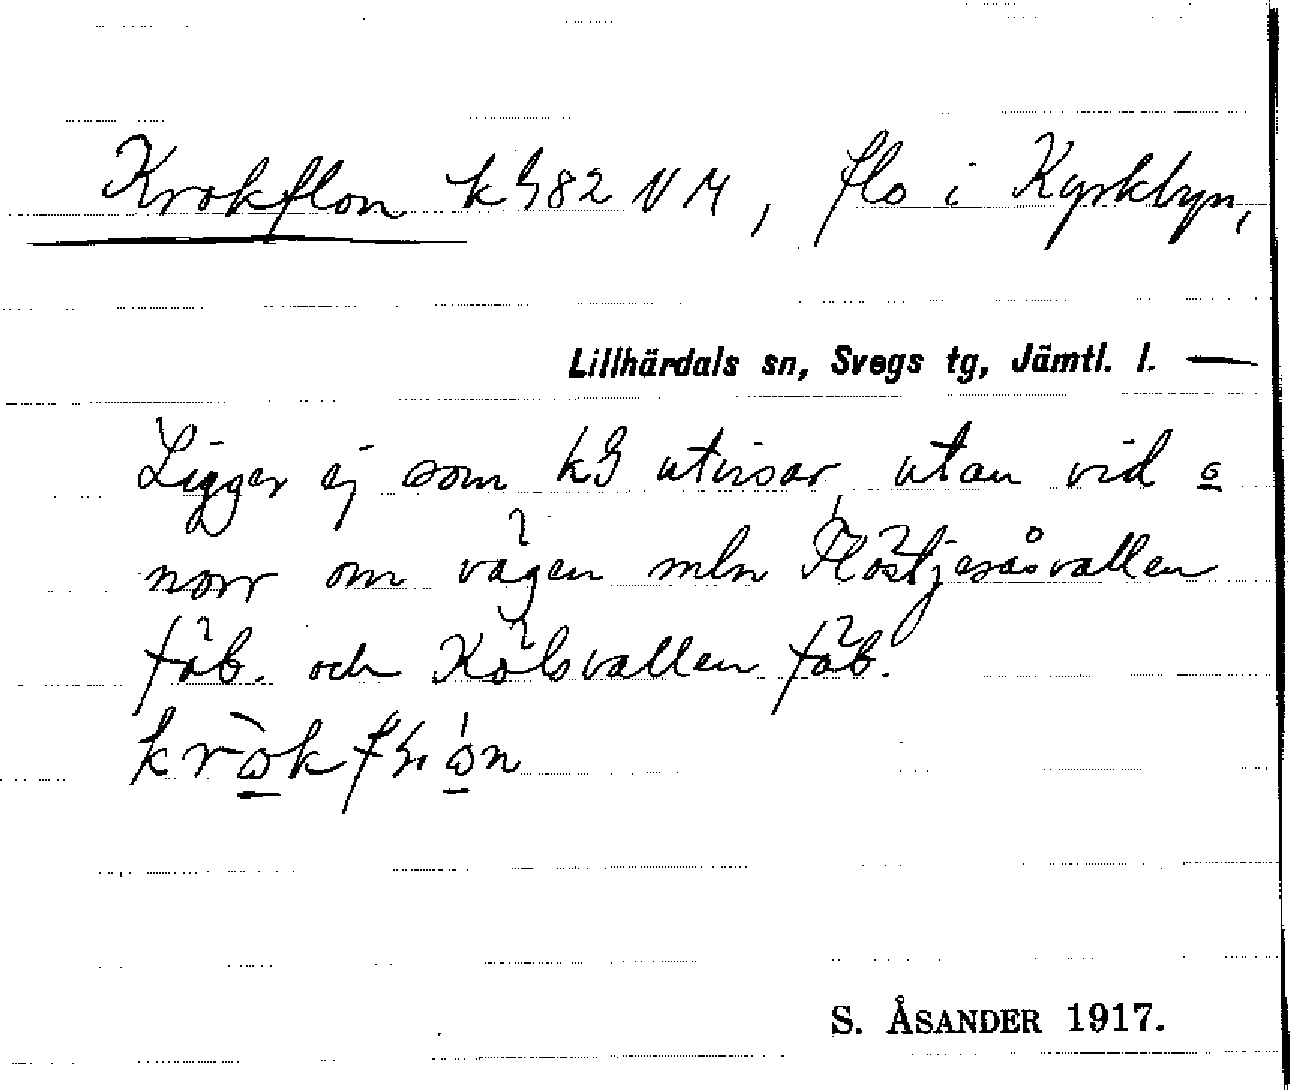 Krokflon kG82 NM, flo i Kyrkbyn,
Lillhärdals sn, Svegs tg, Jämtl. l. —
Ligger ej som kG utvisar, utan vid o
norr om vägen mln Flöstjesåsvallen
fäb. och Kölsvallen fäb.
S. ÅSANDER 1917.